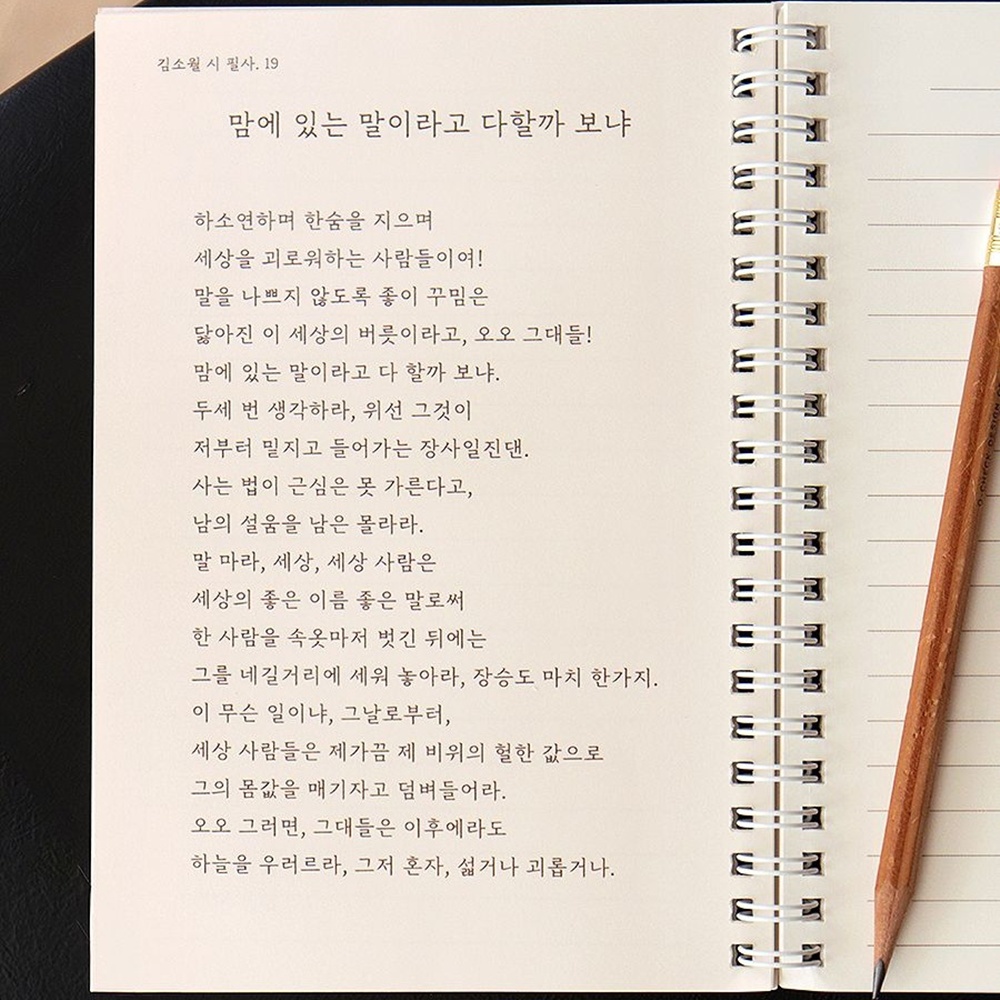 김소월 시 필사. 19
맘에 있는 말이라고 다할까 보냐
하소연하며 한숨을 지으며
세상을 괴로워하는 사람들이여!
말을 나쁘지 않도록 좋이 꾸밈은
닳아진 이 세상의 버릇이라고, 오오 그대들!
맘에 있는 말이라고 다 할까 보냐.
두세 번 생각하라, 위선 그것이
저부터 밑지고 들어가는 장사일진댄.
사는 법이 근심은 못 가른다고,
남의 설움을 남은 몰라라.
말 마라, 세상, 세상 사람은
세상의 좋은 이름 좋은 말로써
한 사람을 속옷마저 벗긴 뒤에는
그를 네길거리에 세워 놓아라, 장승도 마치 한가지.
이 무슨 일이냐, 그날로부터,
세상 사람들은 제가끔 제 비위의 헐한 값으로
그의 몸값을 매기자고 덤벼들어라.
오오 그러면, 그대들은 이후에라도
하늘을 우러르라, 그저 혼자, 섧거나 괴롭거나.